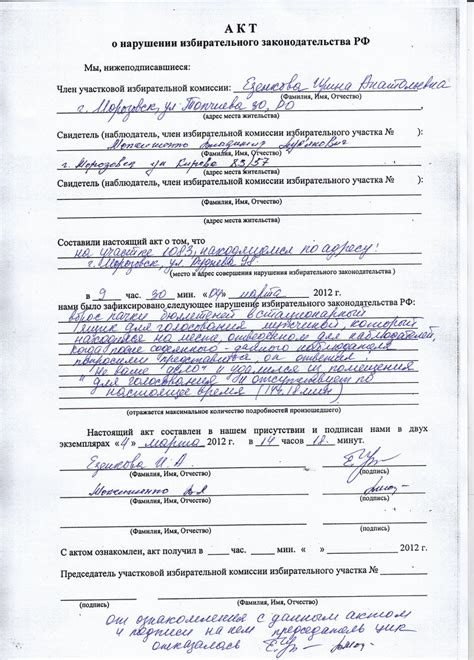 АКТ
о нарушении избирательного законодательства РФ
Мы, нижеподписавшиеся:
Член участковой избирательной комиссии: Езепкова Ирина Анатольевна
(Фамилия, Имя, Отчество)
г. Морозовск, ул. Топчиева 30, РО
(адрес места жительства)
Свидетель (наблюдатель, член избирательной комиссии избирательного участка № ):
Владимир
(Фамилия, Имя, Отчество)
г. Морозовск ул Кирова 83/57
(адрес места жительства)
Свидетель (наблюдатель, член избирательной комиссии избирательного участка № ):
(Фамилия, Имя, Отчество)
(адрес места жительства)
Составили настоящий акт о том, что
на участке 1083, находящемся по адресу:
г. Морозовск, ул
(место и адрес совершения нарушения избирательного законодательства)
в 9 час. 30 мин. «04» марта 2012 г.
нами было зафиксировано следующее нарушение избирательного законодательства РФ:
вброс пачки бюллетеней в стационарный
ящик для голосования, мужчиной, который
находился на месте, отведенном для наблюдателей,
когда после наблюдателя
попросили представиться, он ответил:
"не ваше дело" и удалился из помещения
для голосования и отсутствует по
настоящее время (14ч. 18мин)
(отражается максимальное количество подробностей произошедшего)
Настоящий акт составлен в нашем присутствии и подписан нами в двух
экземплярах «4» марта 2012 г. в 14 часов 18 минут.
Езепкова И. А.
(Фамилия, Имя, Отчество) (подпись)
(Фамилия, Имя, Отчество) (подпись)
(Фамилия, Имя, Отчество) (подпись)
С актом ознакомлен, акт получил в час. мин. « » 2012 г.
Председатель участковой избирательной комиссии избирательного участка №
(подпись) (Фамилия, Имя, Отчество)
от ознакомления с данным актом
и подписи на нем председатель
отказалась